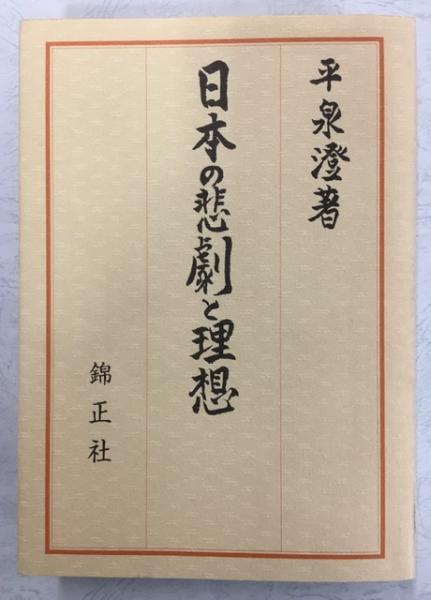 平泉澄著
日本の悲劇と理想
錦正社